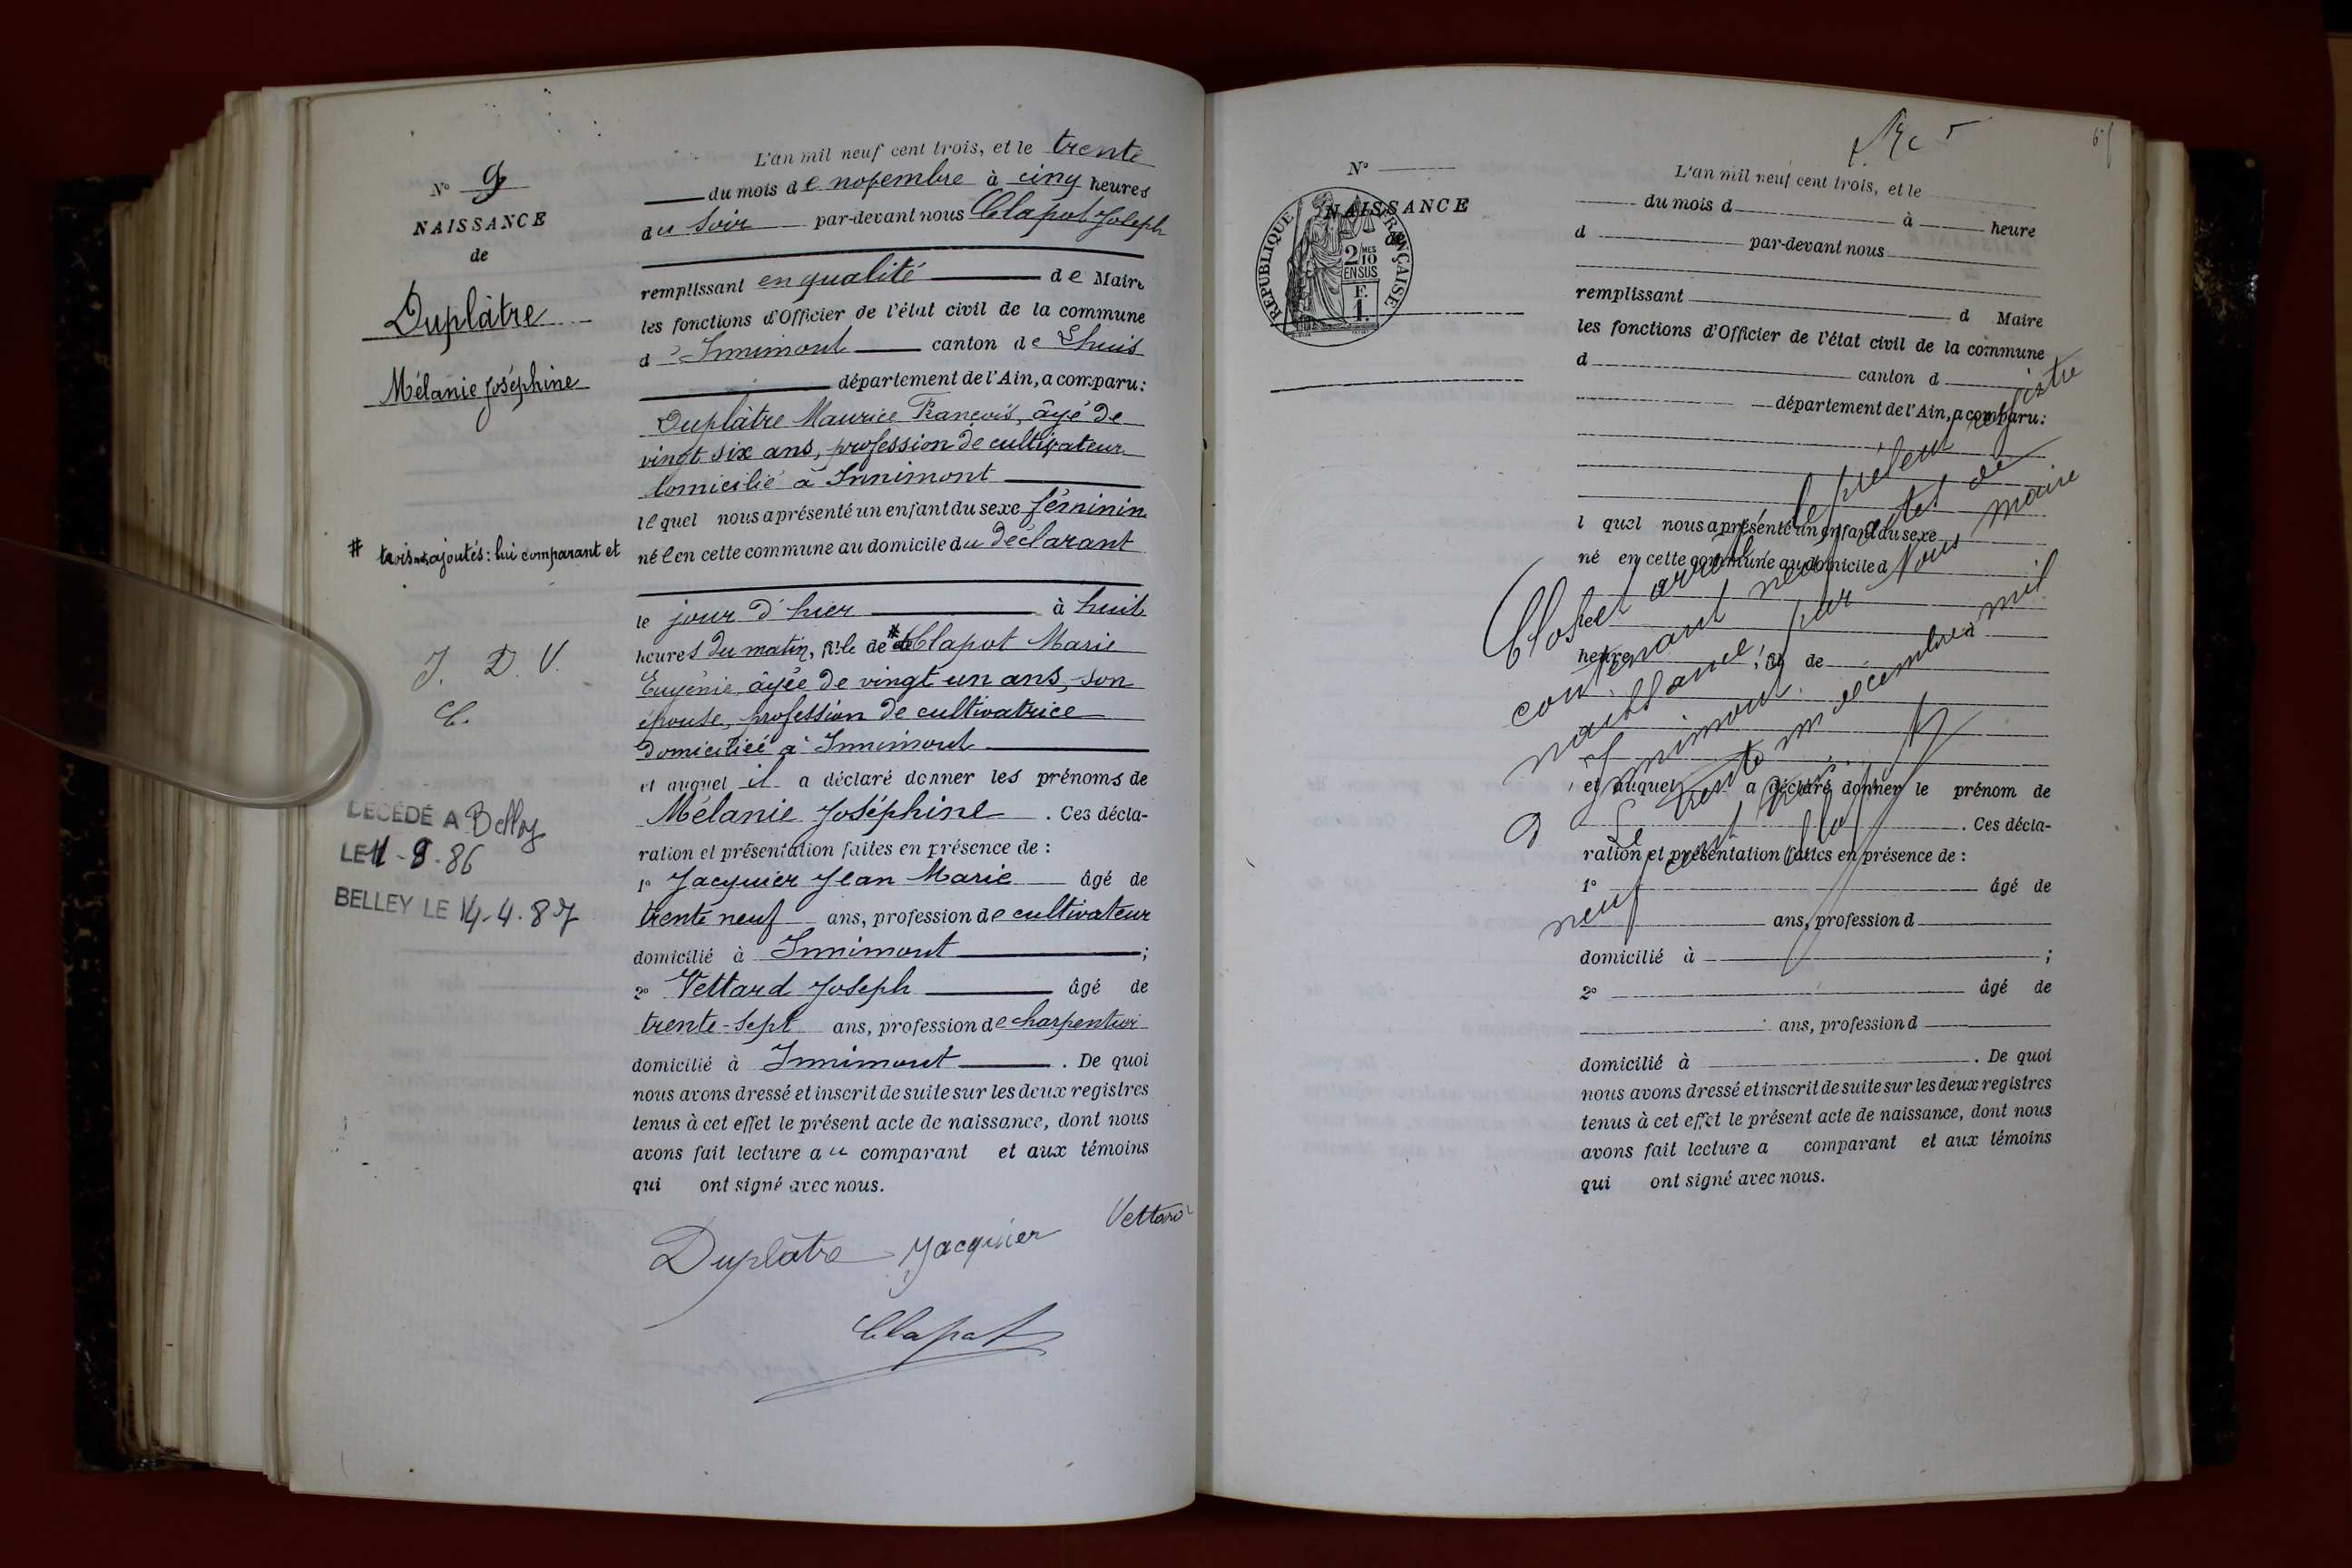 N° 9
NAISSANCE
de
Duplâtre
Mélanie Joséphine
# trois mots ajoutés : lui comparant et
J. D. V.
C.
DÉCÉDÉ A Belley
LE 11-9-86
BELLEY LE 14-4-87
L'an mil neuf cent trois, et le trente
du mois de novembre à cinq heures
du soir par-devant nous Clapot Joseph
remplissant en qualité de Maire
les fonctions d'Officier de l'état civil de la commune
d'Innimont canton de Lhuis
département de l'Ain, a comparu :
Duplâtre Maurice François, âgé de
vingt six ans, profession de cultivateur
domicilié à Innimont
lequel nous a présenté un enfant du sexe féminin
né e en cette commune au domicile du déclarant
le jour d'hier à huit
heures du matin, fille de # Clapot Marie
Eugénie, âgée de vingt un ans, son
épouse, profession de cultivatrice
domiciliée à Innimont
et auquel il a déclaré donner les prénoms de
Mélanie Joséphine . Ces décla-
ration et présentation faites en présence de :
1° Jacquier Jean Marie âgé de
trente neuf ans, profession de cultivateur
domicilié à Innimont ;
2° Vettard Joseph âgé de
trente-sept ans, profession de charpentier
domicilié à Innimont . De quoi
nous avons dressé et inscrit de suite sur les deux registres
tenus à cet effet le présent acte de naissance, dont nous
avons fait lecture au comparant et aux témoins
qui ont signé avec nous.
Duplâtre Jacquier Vettard
Clapot
N°
NAISSANCE
de
RÉPUBLIQUE FRANÇAISE
2/10
MES
EN SUS
F.
1.
L'an mil neuf cent trois, et le
du mois d à heure
d par-devant nous
remplissant d Maire
les fonctions d'Officier de l'état civil de la commune
d canton d
département de l'Ain, a comparu :
l quel nous a présenté un enfant du sexe
né en cette commune au domicile d
le à
heure , fil de
et auquel a déclaré donner le prénom de
. Ces décla-
ration et présentation faites en présence de :
1° âgé de
ans, profession d
domicilié à ;
2° âgé de
ans, profession d
domicilié à . De quoi
nous avons dressé et inscrit de suite sur les deux registres
tenus à cet effet le présent acte de naissance, dont nous
avons fait lecture a comparant et aux témoins
qui ont signé avec nous.
Clos et arrêté le présent registre
contenant neuf actes de
naissance, par Nous maire
d'Innimont.
Le trente un décembre mil
neuf cent trois.
Clapot